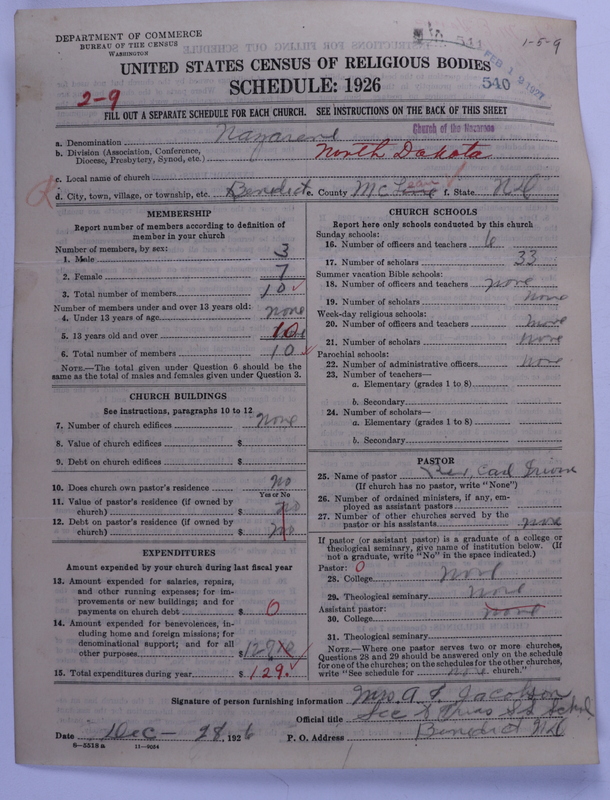 DEPARTMENT OF COMMERCE
BUREAU OF THE CENSUS
WASHINGTON
541
1-5-9
FEB 12 1927
UNITED STATES CENSUS OF RELIGIOUS BODIES
SCHEDULE: 1926
540
2-9
FILL OUT A SEPARATE SCHEDULE FOR EACH CHURCH. SEE INSTRUCTIONS ON THE BACK OF THIS SHEET
a. Denomination Nazarene Church of the Nazarene
b. Division (Association, Conference, Diocese, Presbytery, Synod, etc.) North Dakota
c. Local name of church
d. City, town, village, or township, etc. Benedict e. County McLean f. State ND
MEMBERSHIP
Report number of members according to definition of member in your church
Number of members, by sex:
1. Male 3
2. Female 7
3. Total number of members 10
Number of members under and over 13 years old:
4. Under 13 years of age none
5. 13 years old and over 10
6. Total number of members 10
NOTE.—The total given under Question 6 should be the same as the total of males and females given under Question 3.
CHURCH BUILDINGS
See instructions, paragraphs 10 to 12
7. Number of church edifices None
8. Value of church edifices $
9. Debt on church edifices $
10. Does church own pastor's residence No
Yes or No
11. Value of pastor's residence (if owned by church) $ no
12. Debt on pastor's residence (if owned by church) $ no
EXPENDITURES
Amount expended by your church during last fiscal year
13. Amount expended for salaries, repairs, and other running expenses; for improvements or new buildings; and for payments on church debt $ 0
14. Amount expended for benevolences, including home and foreign missions; for denominational support; and for all other purposes $
15. Total expenditures during year $ 129.
CHURCH SCHOOLS
Report here only schools conducted by this church
Sunday schools:
16. Number of officers and teachers 6
17. Number of scholars 33
Summer vacation Bible schools:
18. Number of officers and teachers none
19. Number of scholars none
Week-day religious schools:
20. Number of officers and teachers none
21. Number of scholars none
Parochial schools:
22. Number of administrative officers none
23. Number of teachers—
a. Elementary (grades 1 to 8)
b. Secondary
24. Number of scholars—
a. Elementary (grades 1 to 8)
b. Secondary
PASTOR
25. Name of pastor Rev. Carl
(If church has no pastor, write "None")
26. Number of ordained ministers, if any, employed as assistant pastors
27. Number of other churches served by the pastor or his assistants none
If pastor (or assistant pastor) is a graduate of a college or theological seminary, give name of institution below. (If not a graduate, write "No" in the space indicated.)
Pastor: 0
28. College none
29. Theological seminary none
Assistant pastor:
30. College none
31. Theological seminary
NOTE.—Where one pastor serves two or more churches, Questions 28 and 29 should be answered only on the schedule for one of the churches; on the schedules for the other churches, write "See schedule for none church."
Signature of person furnishing information Mrs A. F. Jacobson
Official title Sec & Treas SS School
Date Dec - 28, 1926 P. O. Address Benedict ND
8-5518 a 11-9064